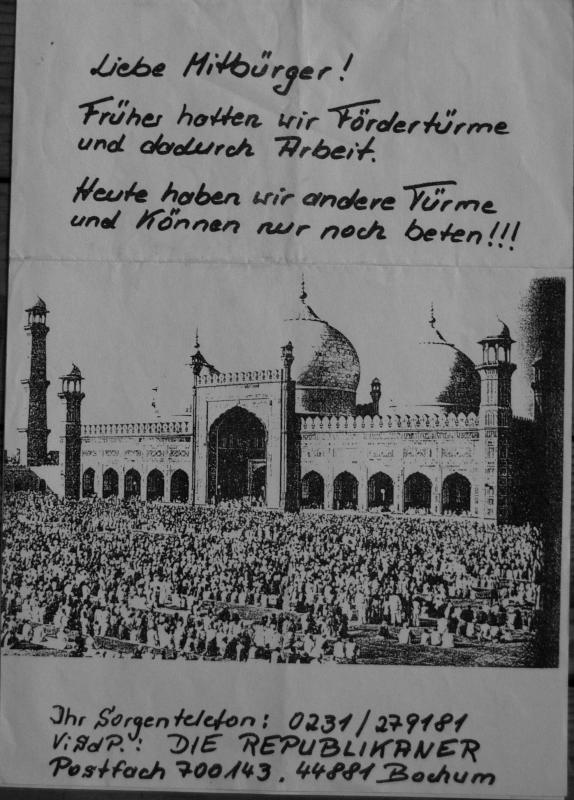 Liebe Mitbürger!
Früher hatten wir Fördertürme
und dadurch Arbeit.
Heute haben wir andere Türme
und können nur noch beten!!!
Ihr Sorgentelefon: 0231/279181
ViSdP.: DIE REPUBLIKANER
Postfach 700143. 44881 Bochum